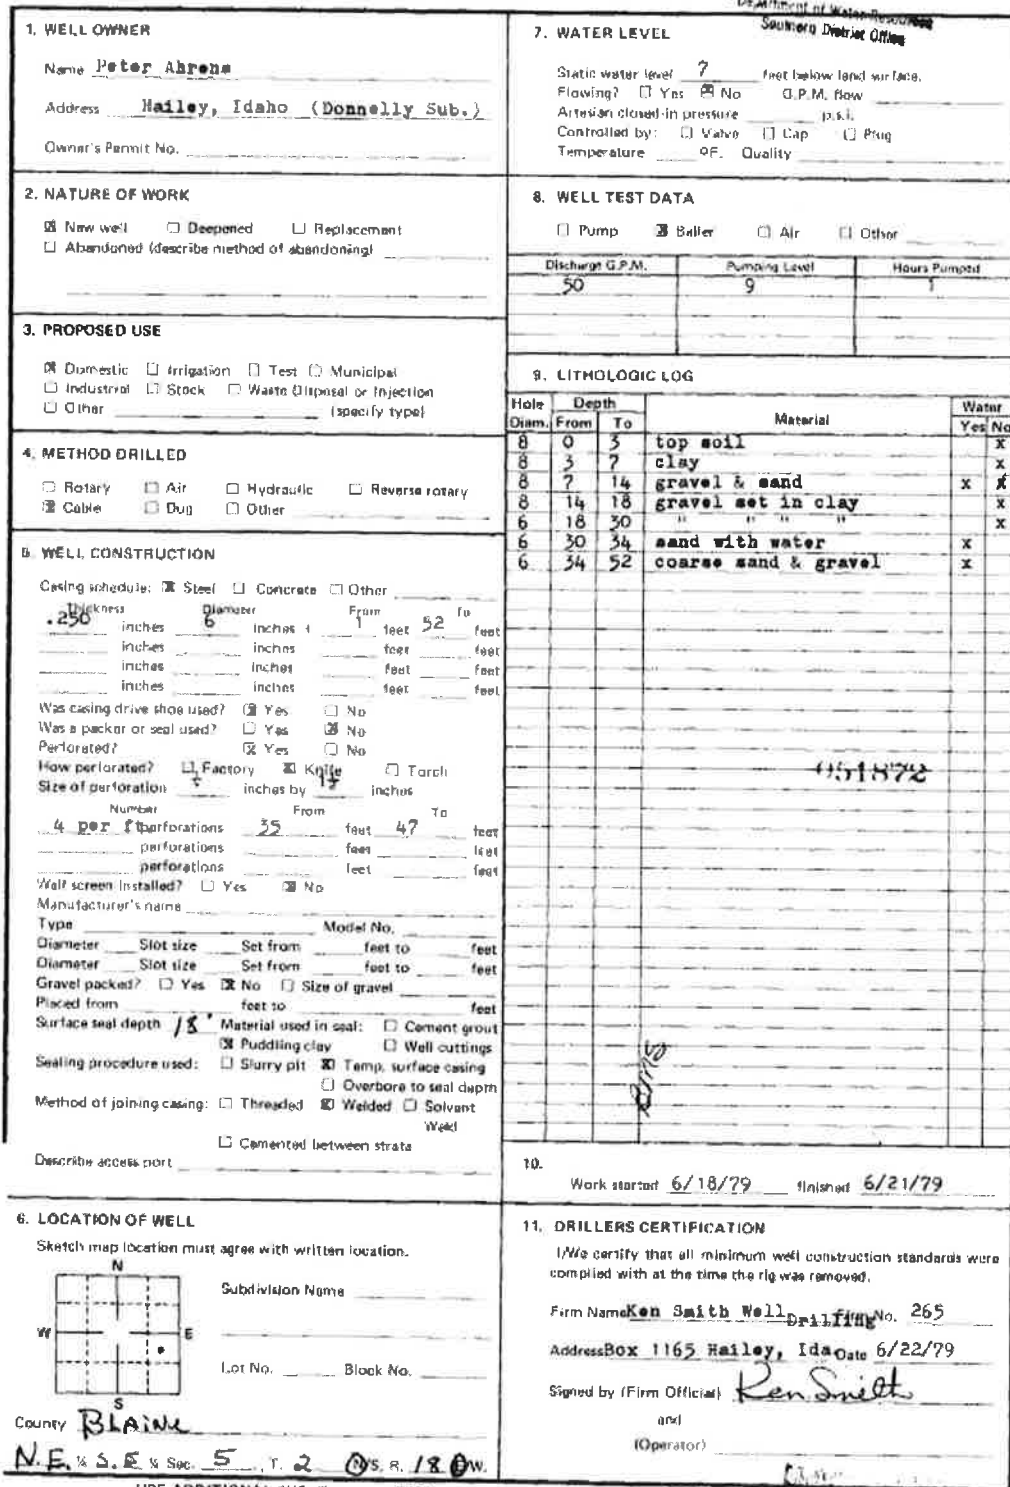 Department of Water Resources
Southern District Office
1. WELL OWNER
Name Peter Ahrens
Address Hailey, Idaho (Donnelly Sub.)
Owner's Permit No.
2. NATURE OF WORK
☒ New well ☐ Deepened ☐ Replacement
☐ Abandoned (describe method of abandoning)
3. PROPOSED USE
☒ Domestic ☐ Irrigation ☐ Test ☐ Municipal
☐ Industrial ☐ Stock ☐ Waste Disposal or Injection
☐ Other (specify type)
4. METHOD DRILLED
☐ Rotary ☐ Air ☐ Hydraulic ☐ Reverse rotary
☒ Cable ☐ Dug ☐ Other
5. WELL CONSTRUCTION
Casing schedule: ☒ Steel ☐ Concrete ☐ Other
Thickness Diameter From To
.250 inches 6 inches + 1 feet 52 feet
inches inches feet feet
inches inches feet feet
inches inches feet feet
Was casing drive shoe used? ☒ Yes ☐ No
Was a packer or seal used? ☐ Yes ☒ No
Perforated? ☒ Yes ☐ No
How perforated? ☐ Factory ☒ Knife ☐ Torch
Size of perforation inches by inches
Number From To
4 per ft perforations 35 feet 47 feet
perforations feet feet
perforations feet feet
Well screen installed? ☐ Yes ☒ No
Manufacturer's name
Type Model No.
Diameter Slot size Set from feet to feet
Diameter Slot size Set from feet to feet
Gravel packed? ☐ Yes ☒ No ☐ Size of gravel
Placed from feet to feet
Surface seal depth 18' Material used in seal: ☐ Cement grout
☒ Puddling clay ☐ Well cuttings
Sealing procedure used: ☐ Slurry pit ☒ Temp. surface casing
☐ Overbore to seal depth
Method of joining casing: ☐ Threaded ☒ Welded ☐ Solvent
Weld
☐ Cemented between strata
Describe access port
6. LOCATION OF WELL
Sketch map location must agree with written location.
N
Subdivision Name
W E
Lot No. Block No.
S
County BLAINE
N.E. ¼ S.E ¼ Sec. 5, T. 2 N/S, R. 18 E/W.
7. WATER LEVEL
Static water level 7 feet below land surface.
Flowing? ☐ Yes ☒ No G.P.M. flow
Artesian closed-in pressure p.s.i.
Controlled by: ☐ Valve ☐ Cap ☐ Plug
Temperature °F. Quality
8. WELL TEST DATA
☐ Pump ☒ Bailer ☐ Air ☐ Other
Discharge G.P.M. Pumping Level Hours Pumped
50 9 1
9. LITHOLOGIC LOG
Hole Depth Water
Diam. From To Material Yes No
8 0 3 top soil x
8 3 7 clay x
8 7 14 gravel & sand x x
8 14 18 gravel set in clay x
6 18 30 " " " " x
6 30 34 sand with water x
6 34 52 coarse sand & gravel x
051872
10.
Work started 6/18/79 finished 6/21/79
11. DRILLERS CERTIFICATION
I/We certify that all minimum well construction standards were
complied with at the time the rig was removed.
Firm Name Ken Smith Well Drilling Firm No. 265
Address Box 1165 Hailey, Ida Date 6/22/79
Signed by (Firm Official) Ken Smith
and
(Operator)